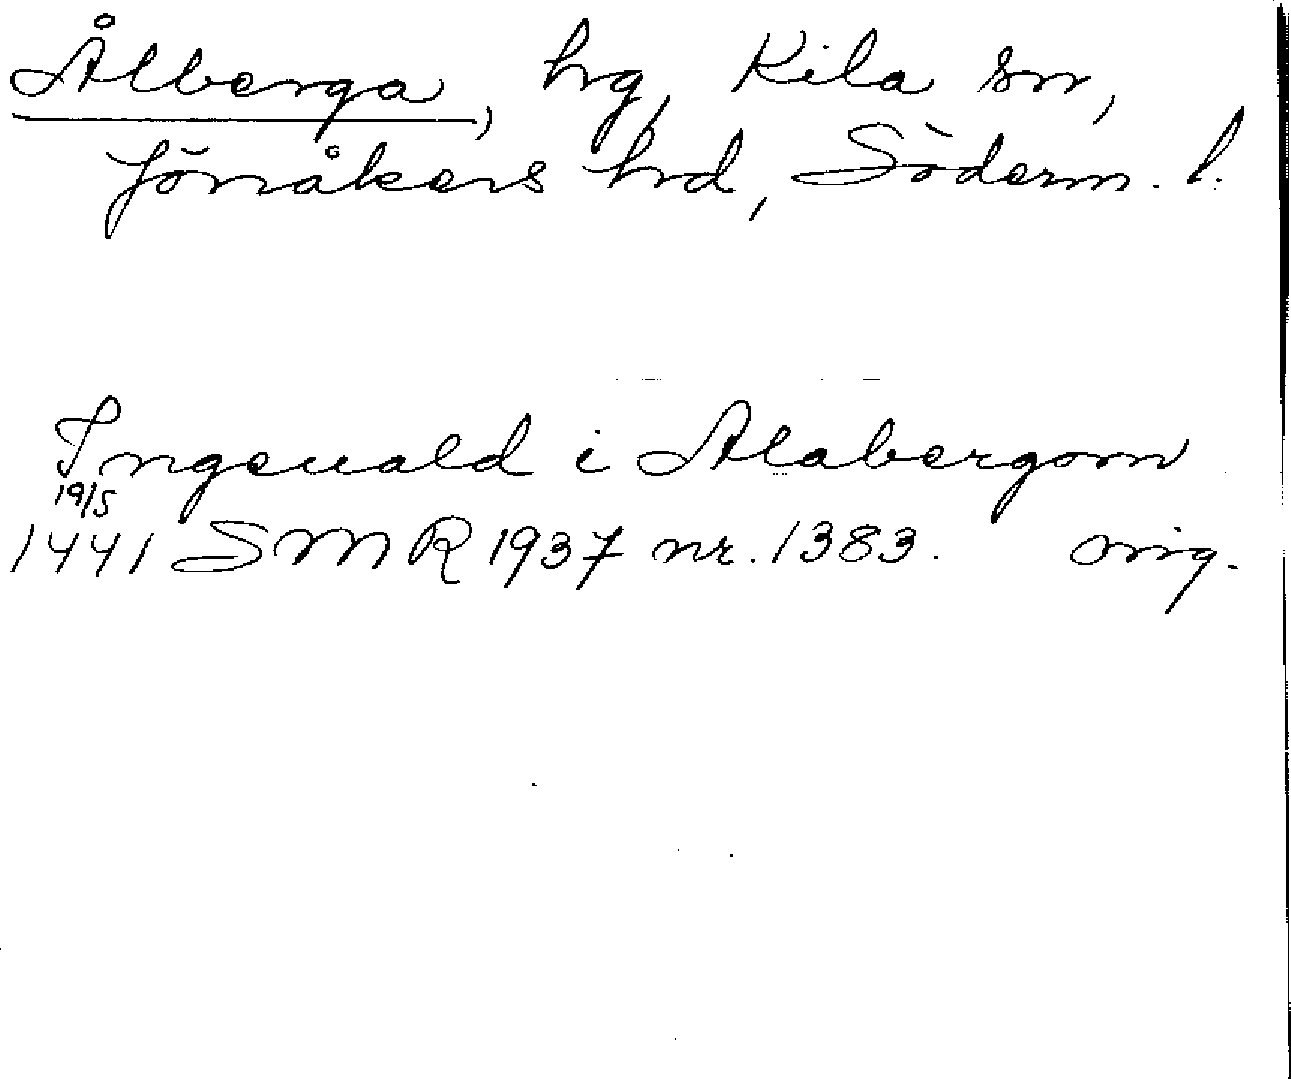 Ålberga, hrg, Kila sn,
Jönåkers hrd, Söderm. l.
Ingeuald i Alabergom
19/5
1441 SMR 1937 nr. 1383. orig.